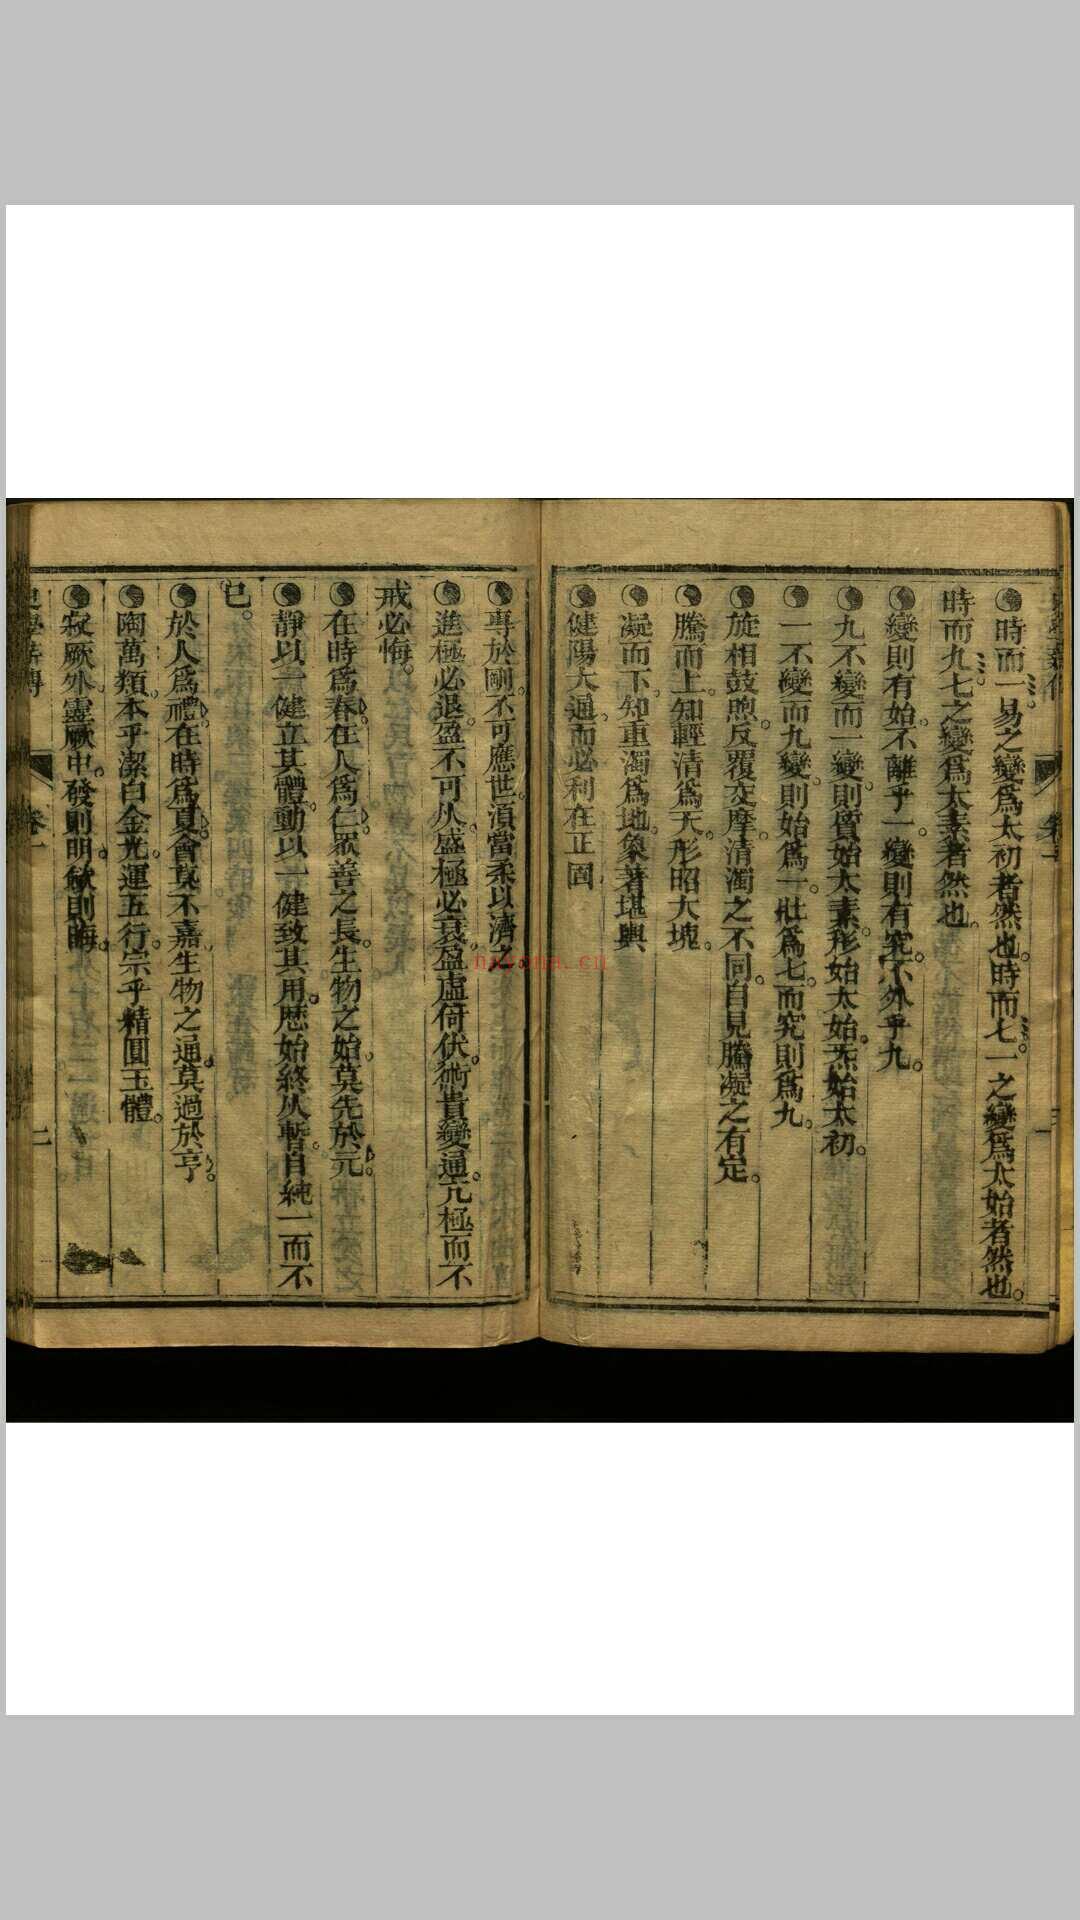 時而一易之變爲太初者然也。時而七一之變爲太始者然也。
時而九七之變爲太素者然也。
變則有始。不離乎一。變則有究。不外乎九。
九不變而一變。則質始太素。形始太始。炁始太初。
一不變而九變。則始爲一。壯爲七。而究則爲九。
旋相鼓煦。反覆交摩。清濁之不同。自見騰凝之有定。
騰而上。知輕清爲天。形昭大塊。
凝而下。知重濁爲地。象著堪輿
健陽大通。而必利在正固
專於剛。不可應世。須當柔以濟之
進極必退。盈不可從。盛極必衰。盈虛倚伏。術貴變通。亢極而不
戒必悔。
在時爲春。在人爲仁。眾善之長。生物之始。莫先於元。
靜以一健立其體。動以一健致其用。歷始終從暫。自純一而不
已。
於人爲禮。在時爲夏。會莫不嘉。生物之通。莫過於亨。
陶萬類。本乎潔白金光。運五行。宗乎精圓玉體。
寂厥外。靈厥中。發則明。斂則晦。
卷一
二
nayona.cn